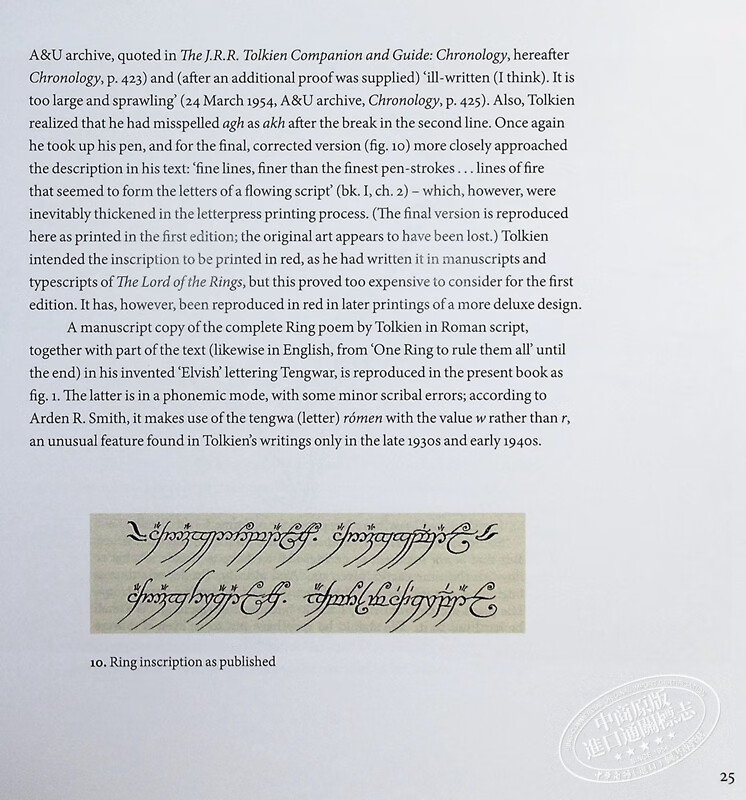 A&U archive, quoted in The J.R.R. Tolkien Companion and Guide: Chronology, hereafter
Chronology, p. 423) and (after an additional proof was supplied) ‘ill-written (I think). It is
too large and sprawling’ (24 March 1954, A&U archive, Chronology, p. 425). Also, Tolkien
realized that he had misspelled agh as akh after the break in the second line. Once again
he took up his pen, and for the final, corrected version (fig. 10) more closely approached
the description in his text: ‘fine lines, finer than the finest pen-strokes . . . lines of fire
that seemed to form the letters of a flowing script’ (bk. I, ch. 2) – which, however, were
inevitably thickened in the letterpress printing process. (The final version is reproduced
here as printed in the first edition; the original art appears to have been lost.) Tolkien
intended the inscription to be printed in red, as he had written it in manuscripts and
typescripts of The Lord of the Rings, but this proved too expensive to consider for the first
edition. It has, however, been reproduced in red in later printings of a more deluxe design.
A manuscript copy of the complete Ring poem by Tolkien in Roman script,
together with part of the text (likewise in English, from ‘One Ring to rule them all’ until
the end) in his invented ‘Elvish’ lettering Tengwar, is reproduced in the present book as
fig. 1. The latter is in a phonemic mode, with some minor scribal errors; according to
Arden R. Smith, it makes use of the tengwa (letter) rómen with the value w rather than r,
an unusual feature found in Tolkien’s writings only in the late 1930s and early 1940s.
10. Ring inscription as published
中商原版
進口通關標志
25